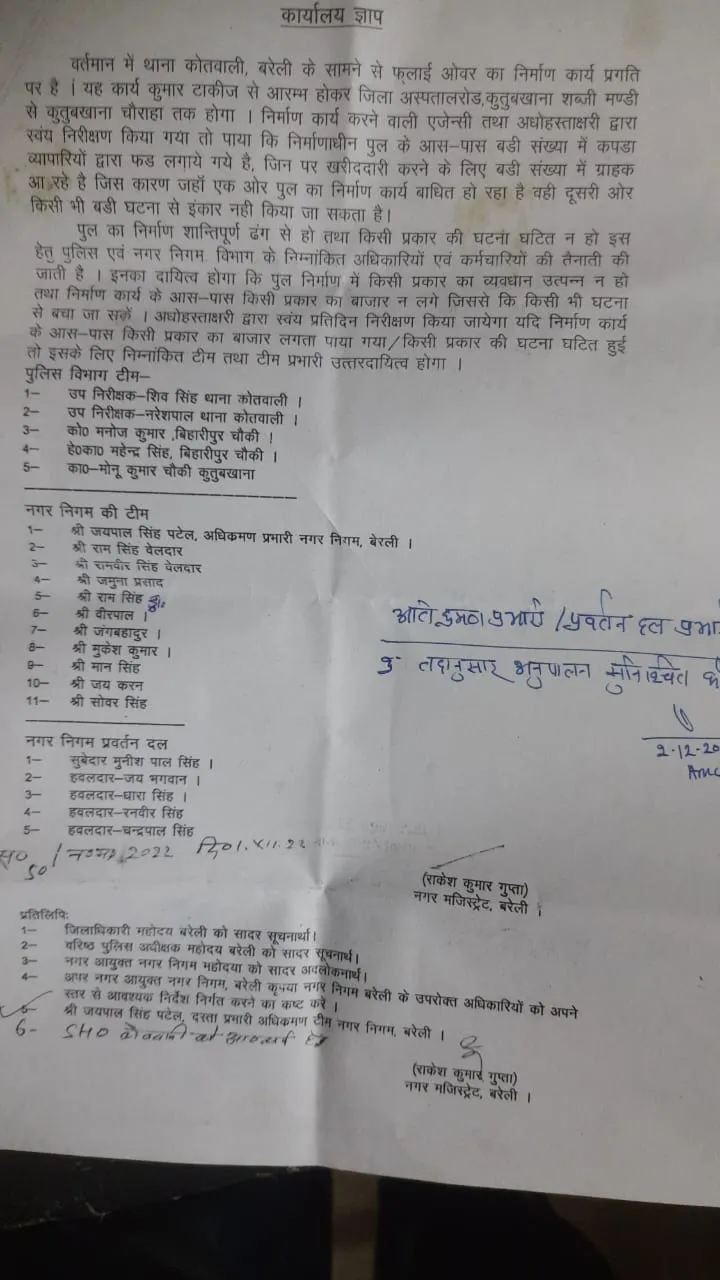 कार्यालय ज्ञाप
वर्तमान में थाना कोतवाली, बरेली के सामने से फ्लाई ओवर का निर्माण कार्य प्रगति
पर है । यह कार्य कुमार टाकीज से आरम्भ होकर जिला अस्पतालरोड,कुतुबखाना शब्जी मण्डी
से कुतुबखाना चौराहा तक होगा । निर्माण कार्य करने वाली एजेन्सी तथा अधोहस्ताक्षरी द्वारा
स्वंय निरीक्षण किया गया तो पाया कि निर्माणाधीन पुल के आस–पास बडी संख्या में कपडा
व्यापारियों द्वारा फड लगाये गये है, जिन पर खरीददारी करने के लिए बडी संख्या में ग्राहक
आ रहे है जिस कारण जहॉ एक ओर पुल का निर्माण कार्य बाधित हो रहा है वही दूसरी ओर
किसी भी बडी घटना से इंकार नही किया जा सकता है।
पुल का निर्माण शान्तिपूर्ण ढंग से हो तथा किसी प्रकार की घटना घटित न हो इस
हेतु पुलिस एवं नगर निगम, विभाग के निम्नांकित अधिकारियों एवं कर्मचारियों की तैनाती की
जाती है । इनका दायित्व होगा कि पुल निर्माण में किसी प्रकार का व्यवधान उत्पन्न न हो
तथा निर्माण कार्य के आस–पास किसी प्रकार का बाजार न लगे जिससे कि किसी भी घटना
से बचा जा सकें । अधोहस्ताक्षरी द्वारा स्वंय प्रतिदिन निरीक्षण किया जायेगा यदि निर्माण कार्य
के आस–पास किसी प्रकार का बाजार लगता पाया गया/किसी प्रकार की घटना घटित हुई
तो इसके लिए निम्नांकित टीम तथा टीम प्रभारी उत्तरदायित्व होगा ।
पुलिस विभाग टीम–
1– उप निरीक्षक–शिव सिंह थाना कोतवाली ।
2– उप निरीक्षक–नरेशपाल थाना कोतवाली ।
3– को0 मनोज कुमार ,बिहारीपुर चौकी !
4– हे0का0 महेन्द्र सिंह, बिहारीपुर चौकी ।
5– का0–मोनू कुमार चौकी कुतुबखाना
नगर निगम की टीम
1– श्री जयपाल सिंह पटेल, अधिकमण प्रभारी नगर निगम, बेरली ।
2– श्री राम सिंह वेलदार
3– श्री रामवीर सिंह वेलदार
4– श्री जमुना प्रसाद
5– श्री राम सिंह
6– श्री वीरपाल ।
7– श्री जंगबहादुर ।
8– श्री मुकेश कुमार ।
9– श्री मान सिंह
10– श्री जय करन
11– श्री सोवर सिंह
/प्रवर्तन दल
तदानुसार अनुपालन सुनिश्चित
2-12-20
नगर निगम प्रवर्तन दल
1– सुबेदार मुनीश पाल सिंह ।
2– हवलदार–जय भगवान ।
3– हवलदार–धारा सिंह ।
4– हवलदार–रनवीर सिंह
5– हवलदार–चन्द्रपाल सिंह
2022 दि01.XII.22
(राकेश कुमार गुप्ता)
नगर मजिस्ट्रेट, बरेली ।
प्रतिलिपिः
1– जिलाधिकारी महोदय बरेली को सादर सूचनार्थ।
2– वरिष्ठ पुलिस अदीक्षक महोदय बरेली को सादर सूचनार्थ।
3– नगर आयुक्त नगर निगम महोदया को सादर अवलोकनार्थ।
4– अपर नगर आयुक्त नगर निगम, बरेली कृपया नगर निगम बरेली के उपरोक्त अधिकारियों को अपने
स्तर से आवश्यक निर्देश निर्गत करने का कष्ट करें ।
5– श्री जयपाल सिंह पटेल, दस्ता प्रभारी अधिकमण टीम नगर निगम, बरेली ।
6- SHO कोतवाली को
(राकेश कुमार गुप्ता)
नगर मजिस्ट्रेट, बरेली ।